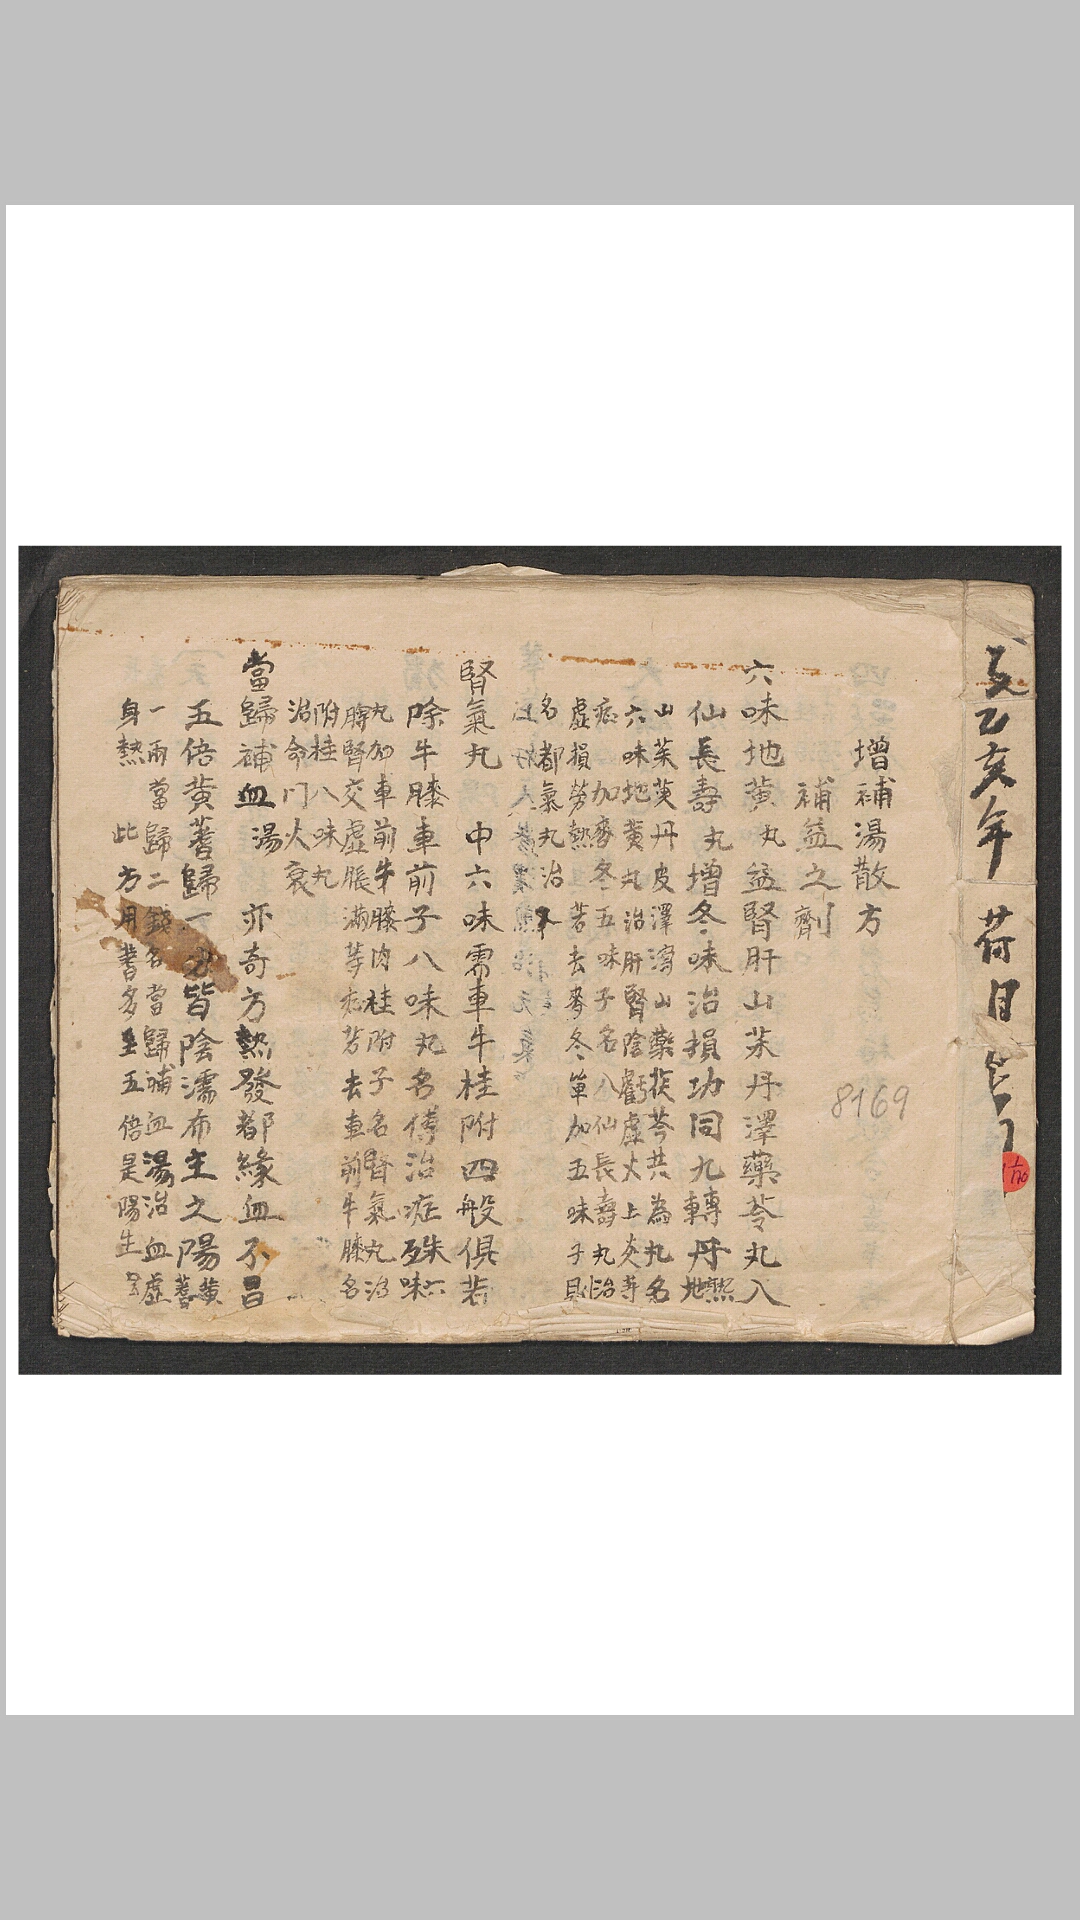 乙亥年 荷月
增補湯散方
補益之劑
六味地黃丸益腎肝山茱丹澤藥苓丸八
仙長壽丸增冬味治損功同九轉丹熟地
山茱萸丹皮澤瀉山藥茯苓共為丸名
六味地黃丸治肝腎陰虧虛火上炎等
症加麥冬五味子名八仙長壽丸治
虛損勞熱若去麥冬單加五味子則
名都氣丸治
腎氣丸 中六味需車牛桂附四般俱若
除牛膝車前子八味丸名傅治症殊六味
丸加車前牛膝肉桂附子名腎氣丸治
脾腎交虛脹滿等症若去車前牛膝名
附桂八味丸
治命门火衰
當歸補血湯 亦奇方熱發都緣血不昌
五倍黃蓍歸一皆陰濡布主之陽黃蓍
一兩當歸二錢名當歸補血湯治血虛
身熱 此方用蓍多至五倍是陽生
8169
1/70